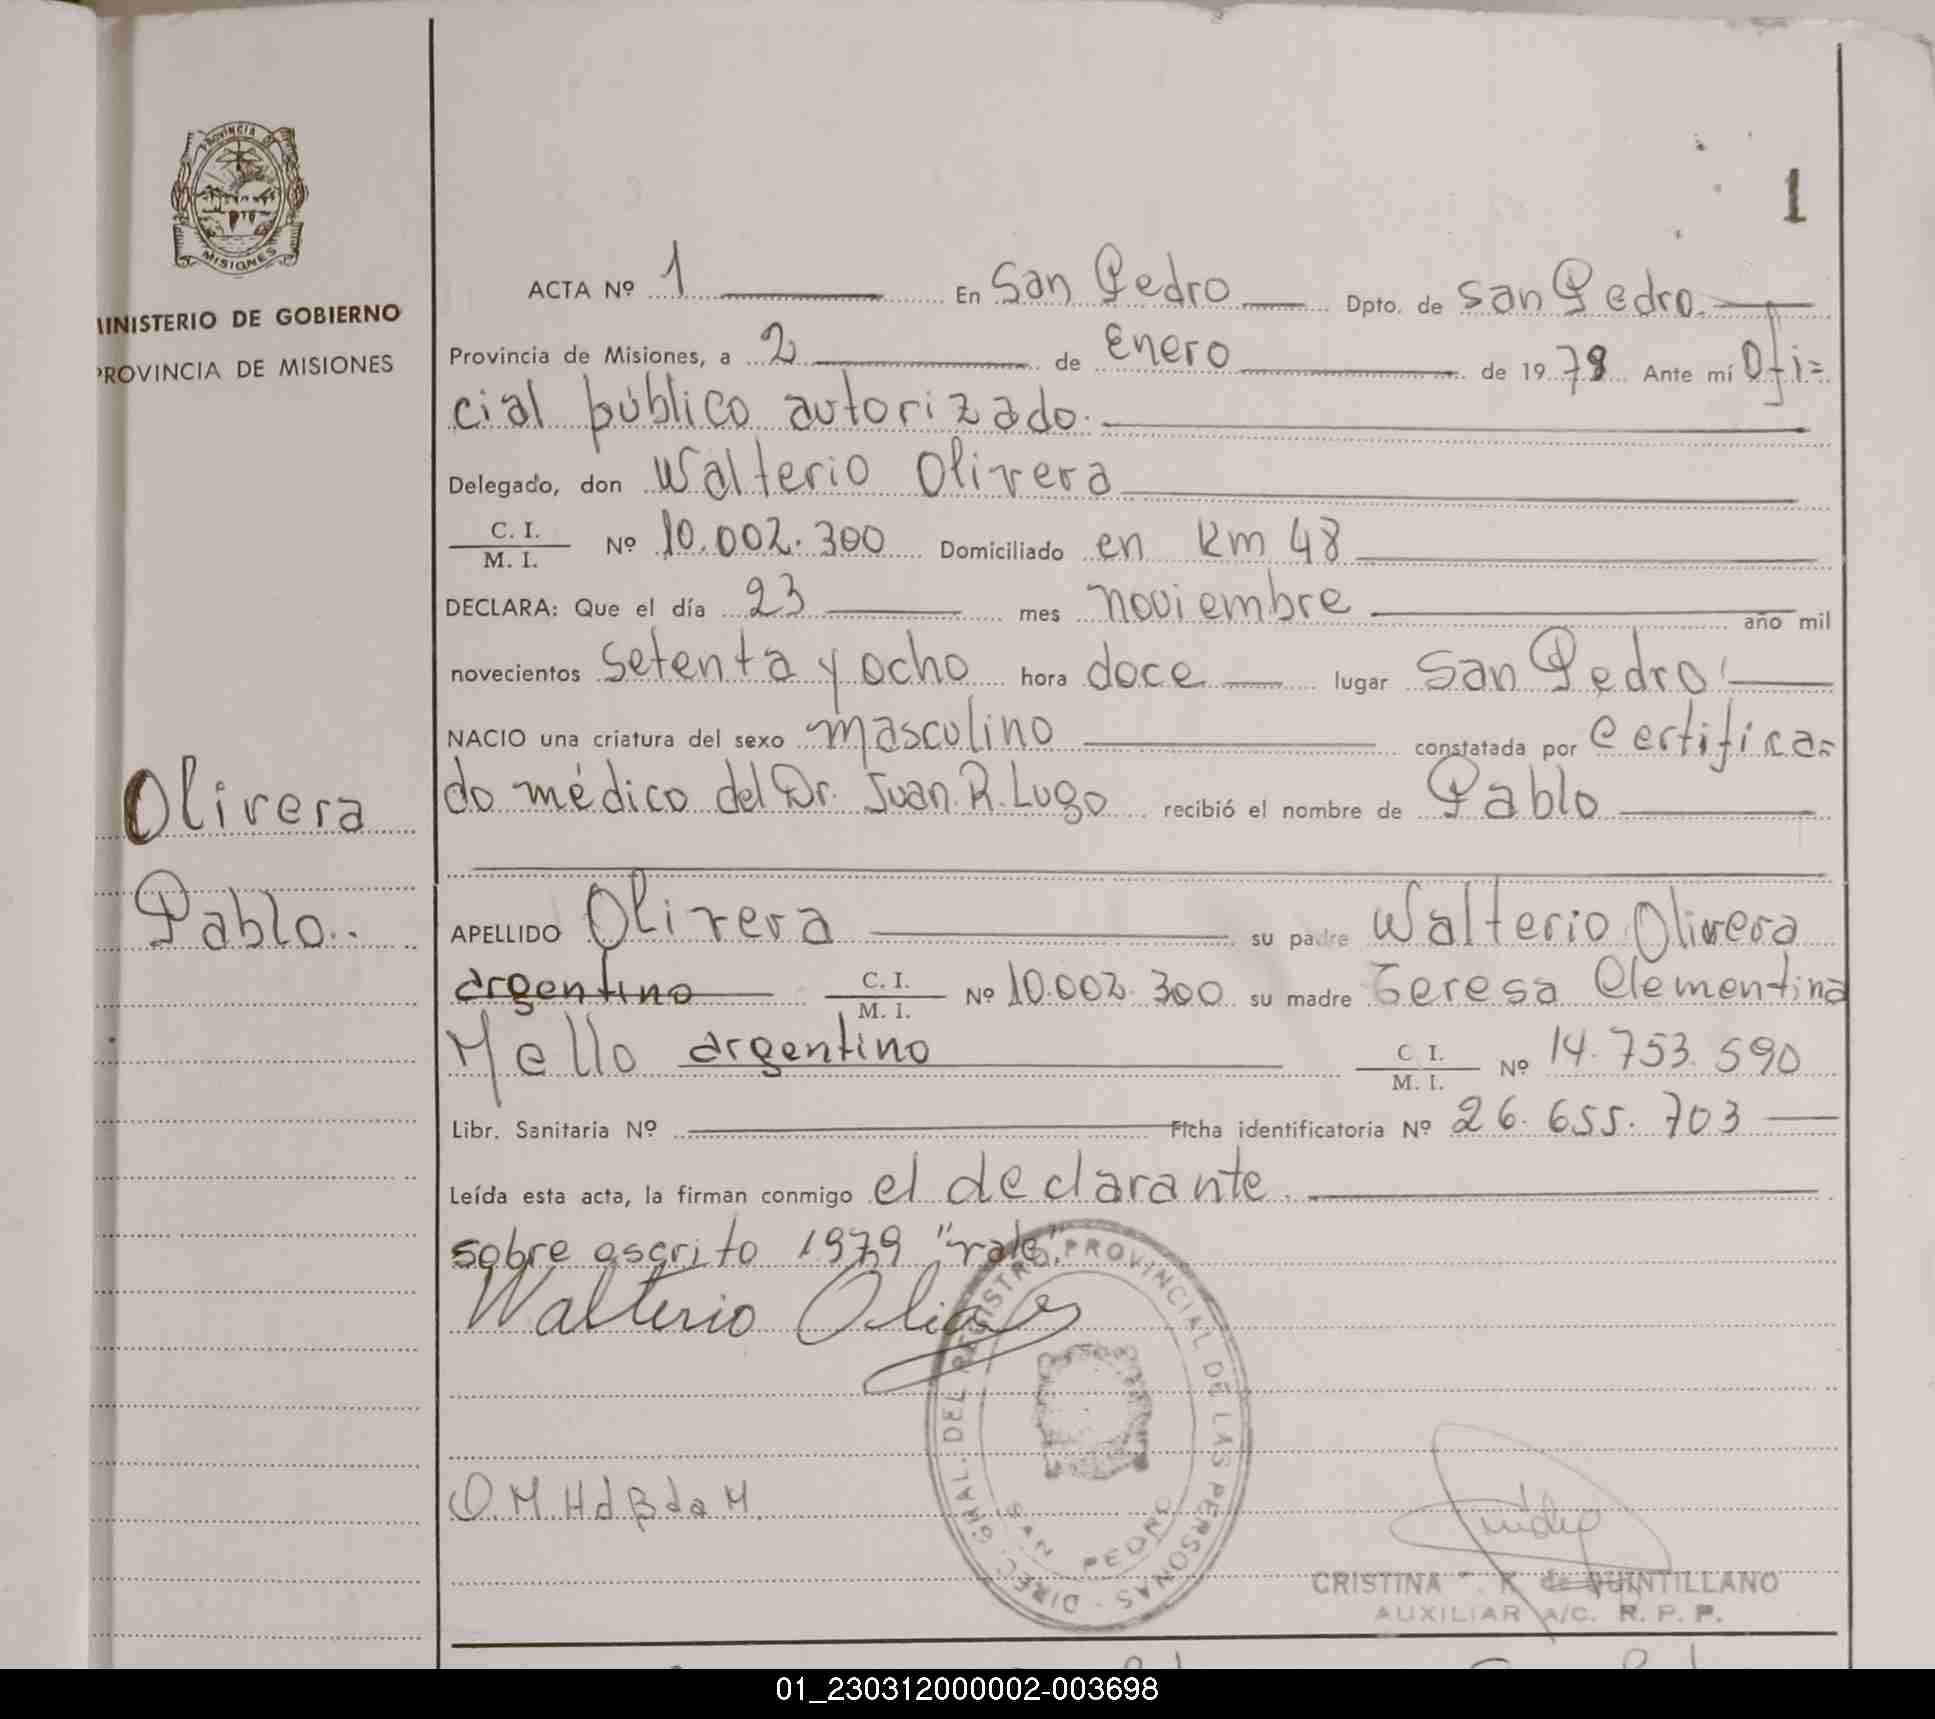 PROVINCIA DE
MISIONES
MINISTERIO DE GOBIERNO
PROVINCIA DE MISIONES
Olivera
Pablo.
1
ACTA Nº 1 En San Pedro Dpto. de San Pedro.
Provincia de Misiones, a 2 de Enero de 1979 Ante mí Ofi=
cial público autorizado.
Delegado, don Walterio Olivera
C. I.
M. I. Nº 10.002.300 Domiciliado en Km 48
DECLARA: Que el día 23 mes noviembre año mil
novecientos setenta y ocho hora doce lugar San Pedro
NACIO una criatura del sexo masculino constatada por Certifica=
do médico del Dr. Juan R. Lugo recibió el nombre de Pablo
APELLIDO Olivera su padre Walterio Olivera
argentino C. I.
M. I. Nº 10.002.300 su madre Teresa Clementina
Mello argentino C I.
M. I. Nº 14.753.590
Libr. Sanitaria Nº Ficha identificatoria Nº 26.655.703
Leída esta acta, la firman conmigo el declarante.
sobre escrito 1979 "vale".
Walterio Olivera
O.M.HdBdaM.
DIREC. GRAL. DEL REGISTRO PROVINCIAL DE LAS PERSONAS -
SAN PEDRO
CRISTINA K de QUINTILLANO
AUXILIAR A/C. R. P. P.
01_230312000002-003698